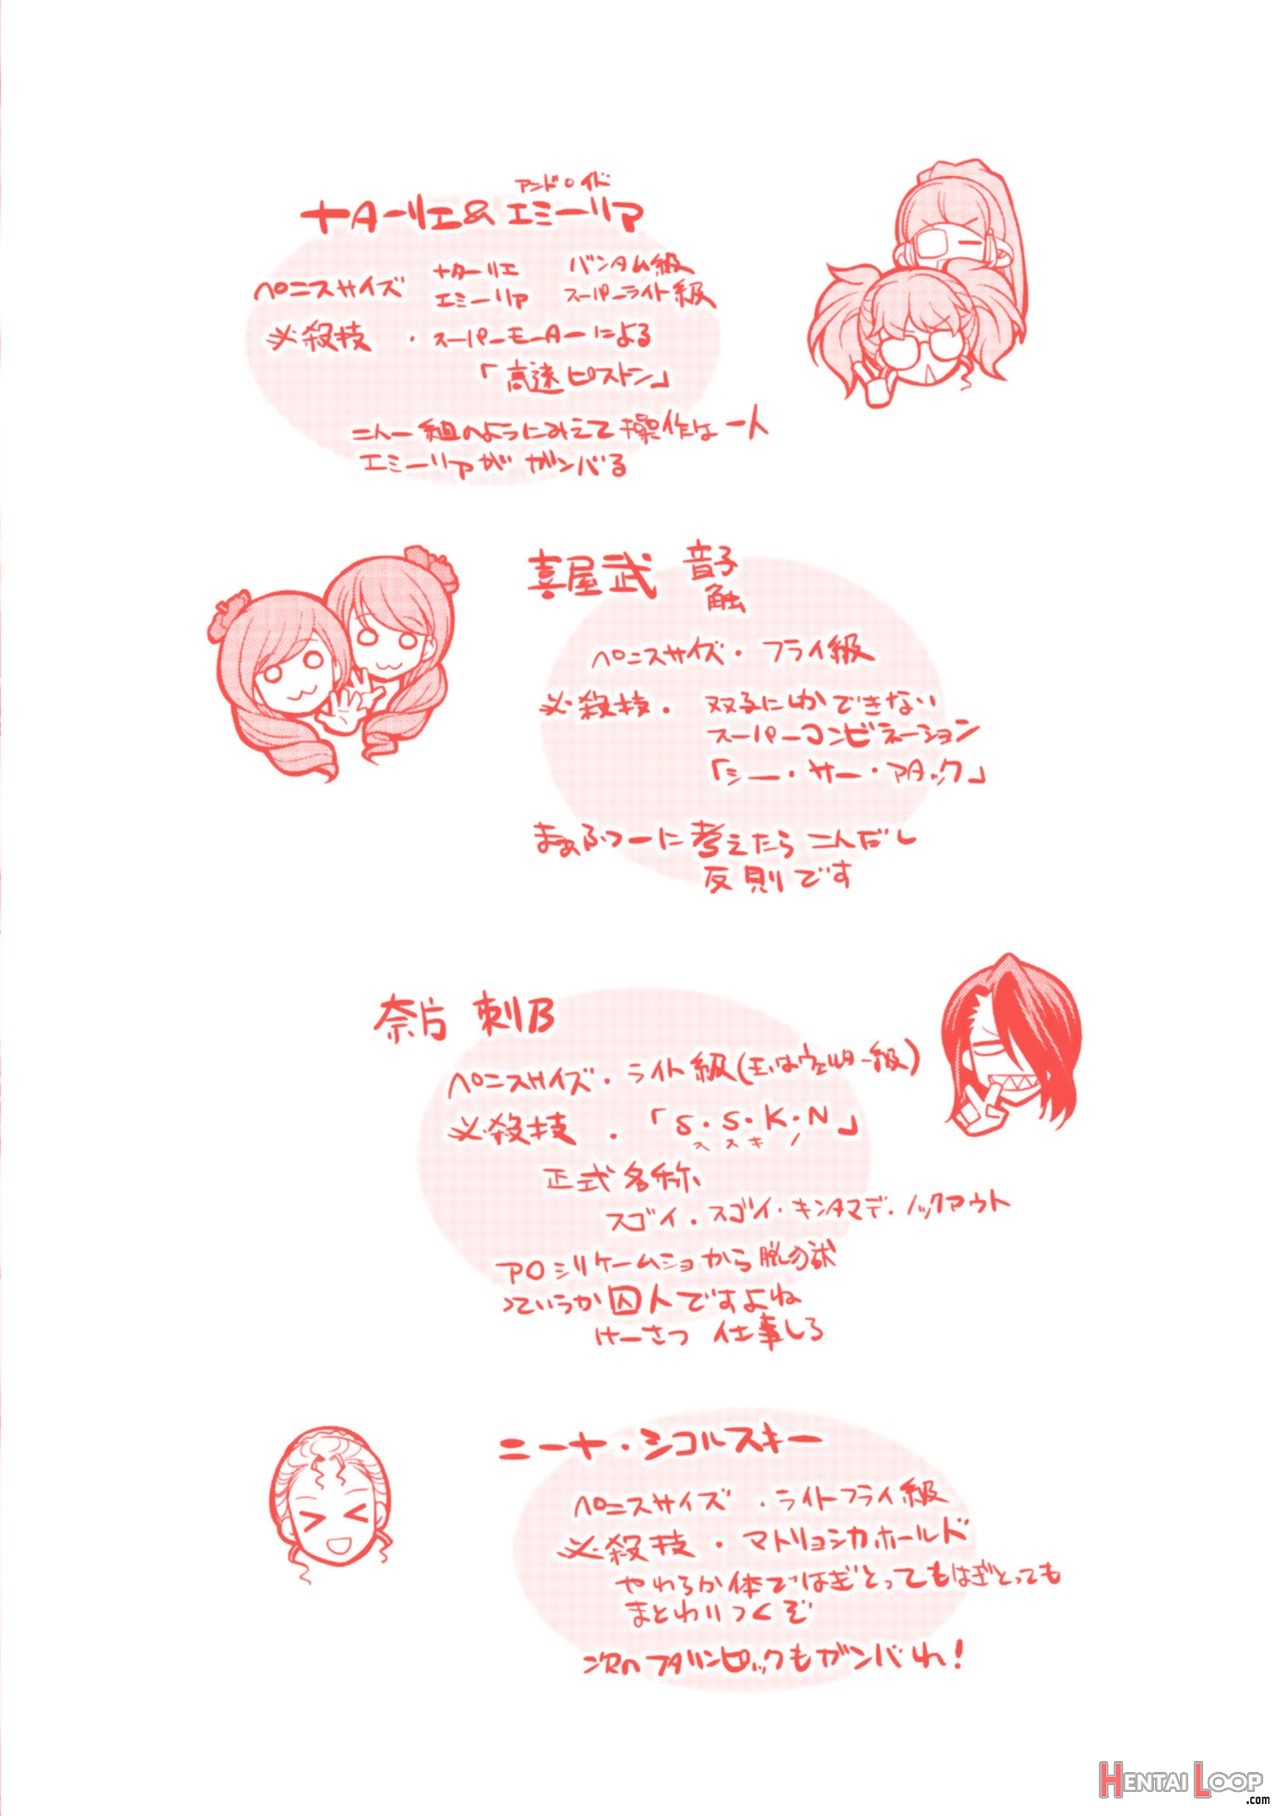 アンド○イド
ナターリエ&エミーリア
ペニスサイズ ナターリエ バンタム級
エミーリア スーパーライト級
必殺技・スーパーモーターによる
「高速ピストン」
二人一組のようにみえて操作は一人
エミーリアがガンバる
喜屋武 音子
触
ペニスサイズ・フライ級
必殺技・双子にしかできない
スーパーコンビネーション
「シー・サー・アタック」
まぁふつーに考えたら二人だし
反則です
奈片 刺B
ペニスサイズ・ライト級(玉はウェルター級)
必殺技・「S・S・K・N」
ススキノ
正式名称
スゴイ・スゴイ・キンタマデ・ノックアウト
アバシリケームショから脱獄
っていうか囚人ですよね
けーさつ 仕事しろ
ニーナ・シコルスキー
ペニスサイズ・ライトフライ級
必殺技・マトリョシカホールド
やわらか体ではぎとってもはぎとっても
まとわりつくぞ
次のフタリンピックもガンバれ!
HENTAI LOOP
.com